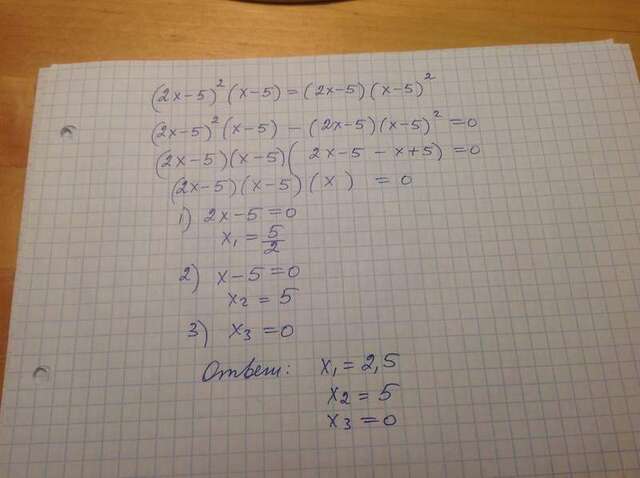 (2x-5)² (x-5) = (2x-5) (x-5)²
(2x-5)² (x-5) - (2x-5) (x-5)² = 0
(2x-5) (x-5) ( 2x-5 - x+5) = 0
(2x-5) (x-5) (x) = 0
1) 2x-5=0
x₁ = 5/2
2) x-5=0
x₂ = 5
3) x₃ = 0
Ответ: x₁ = 2,5
x₂ = 5
x₃ = 0